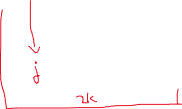 j
2k